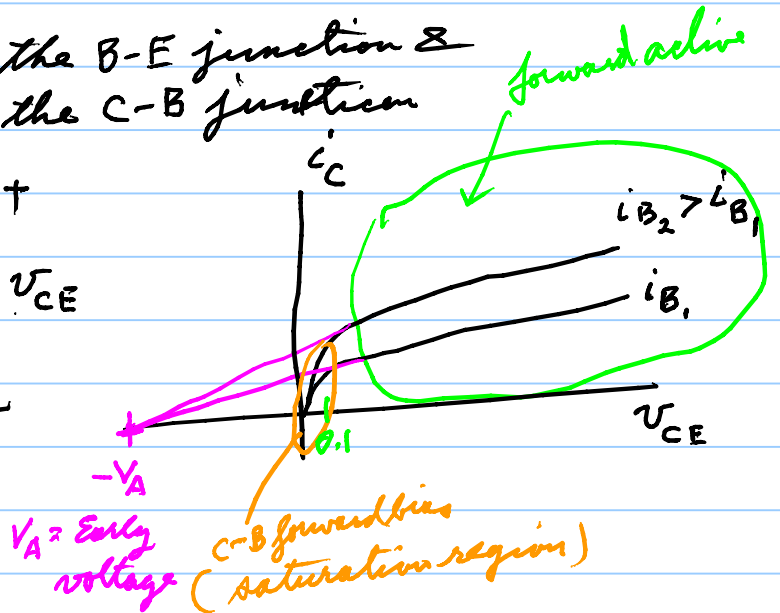 the B-E junction &
the C-B junction
forward active
i_C
+
i_B2 > i_B1
v_CE
i_B1
0.1
v_CE
-
-V_A
V_A = Early
voltage
C-B forward bias
(saturation region)